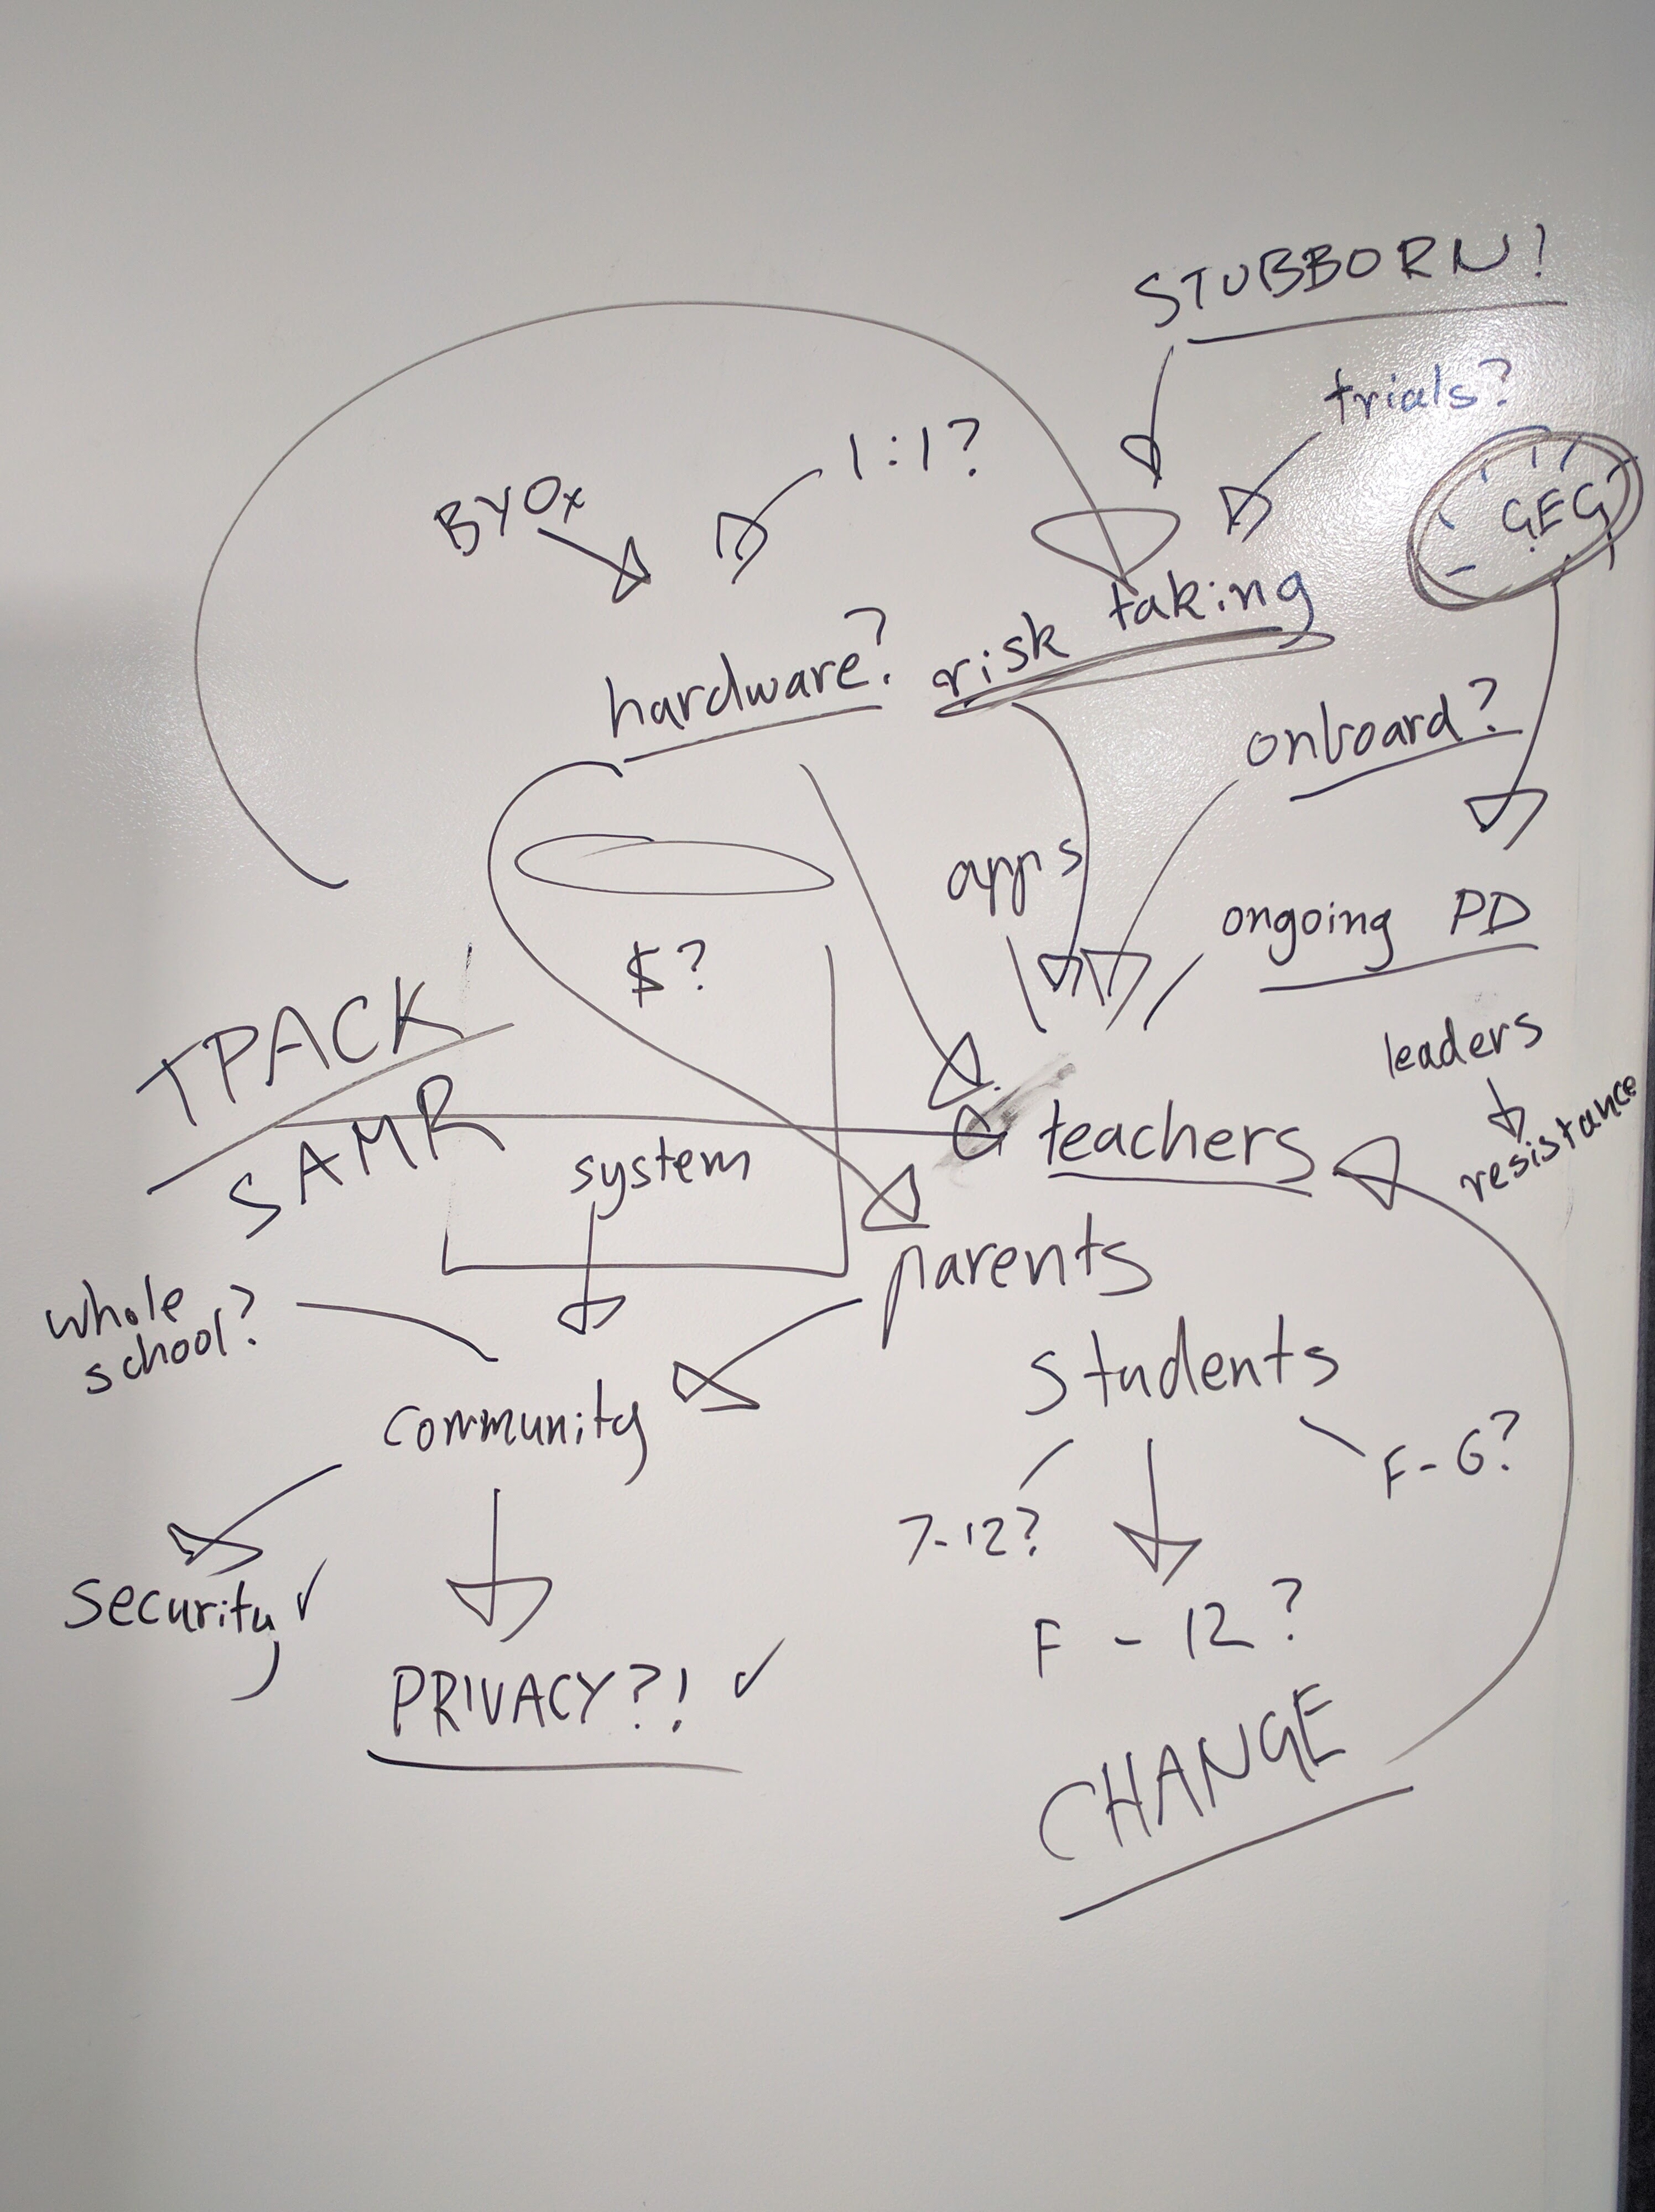 STUBBORN?
trials?
1:1?
BYOx
GEG
risk taking
hardware?
onboard?
apps
ongoing PD
$?
TPACK
SAMR
leaders
resistance
teachers
system
parents
whole
school?
students
community
F-6?
7-12?
security ✓
F - 12?
PRIVACY?! ✓
CHANGE